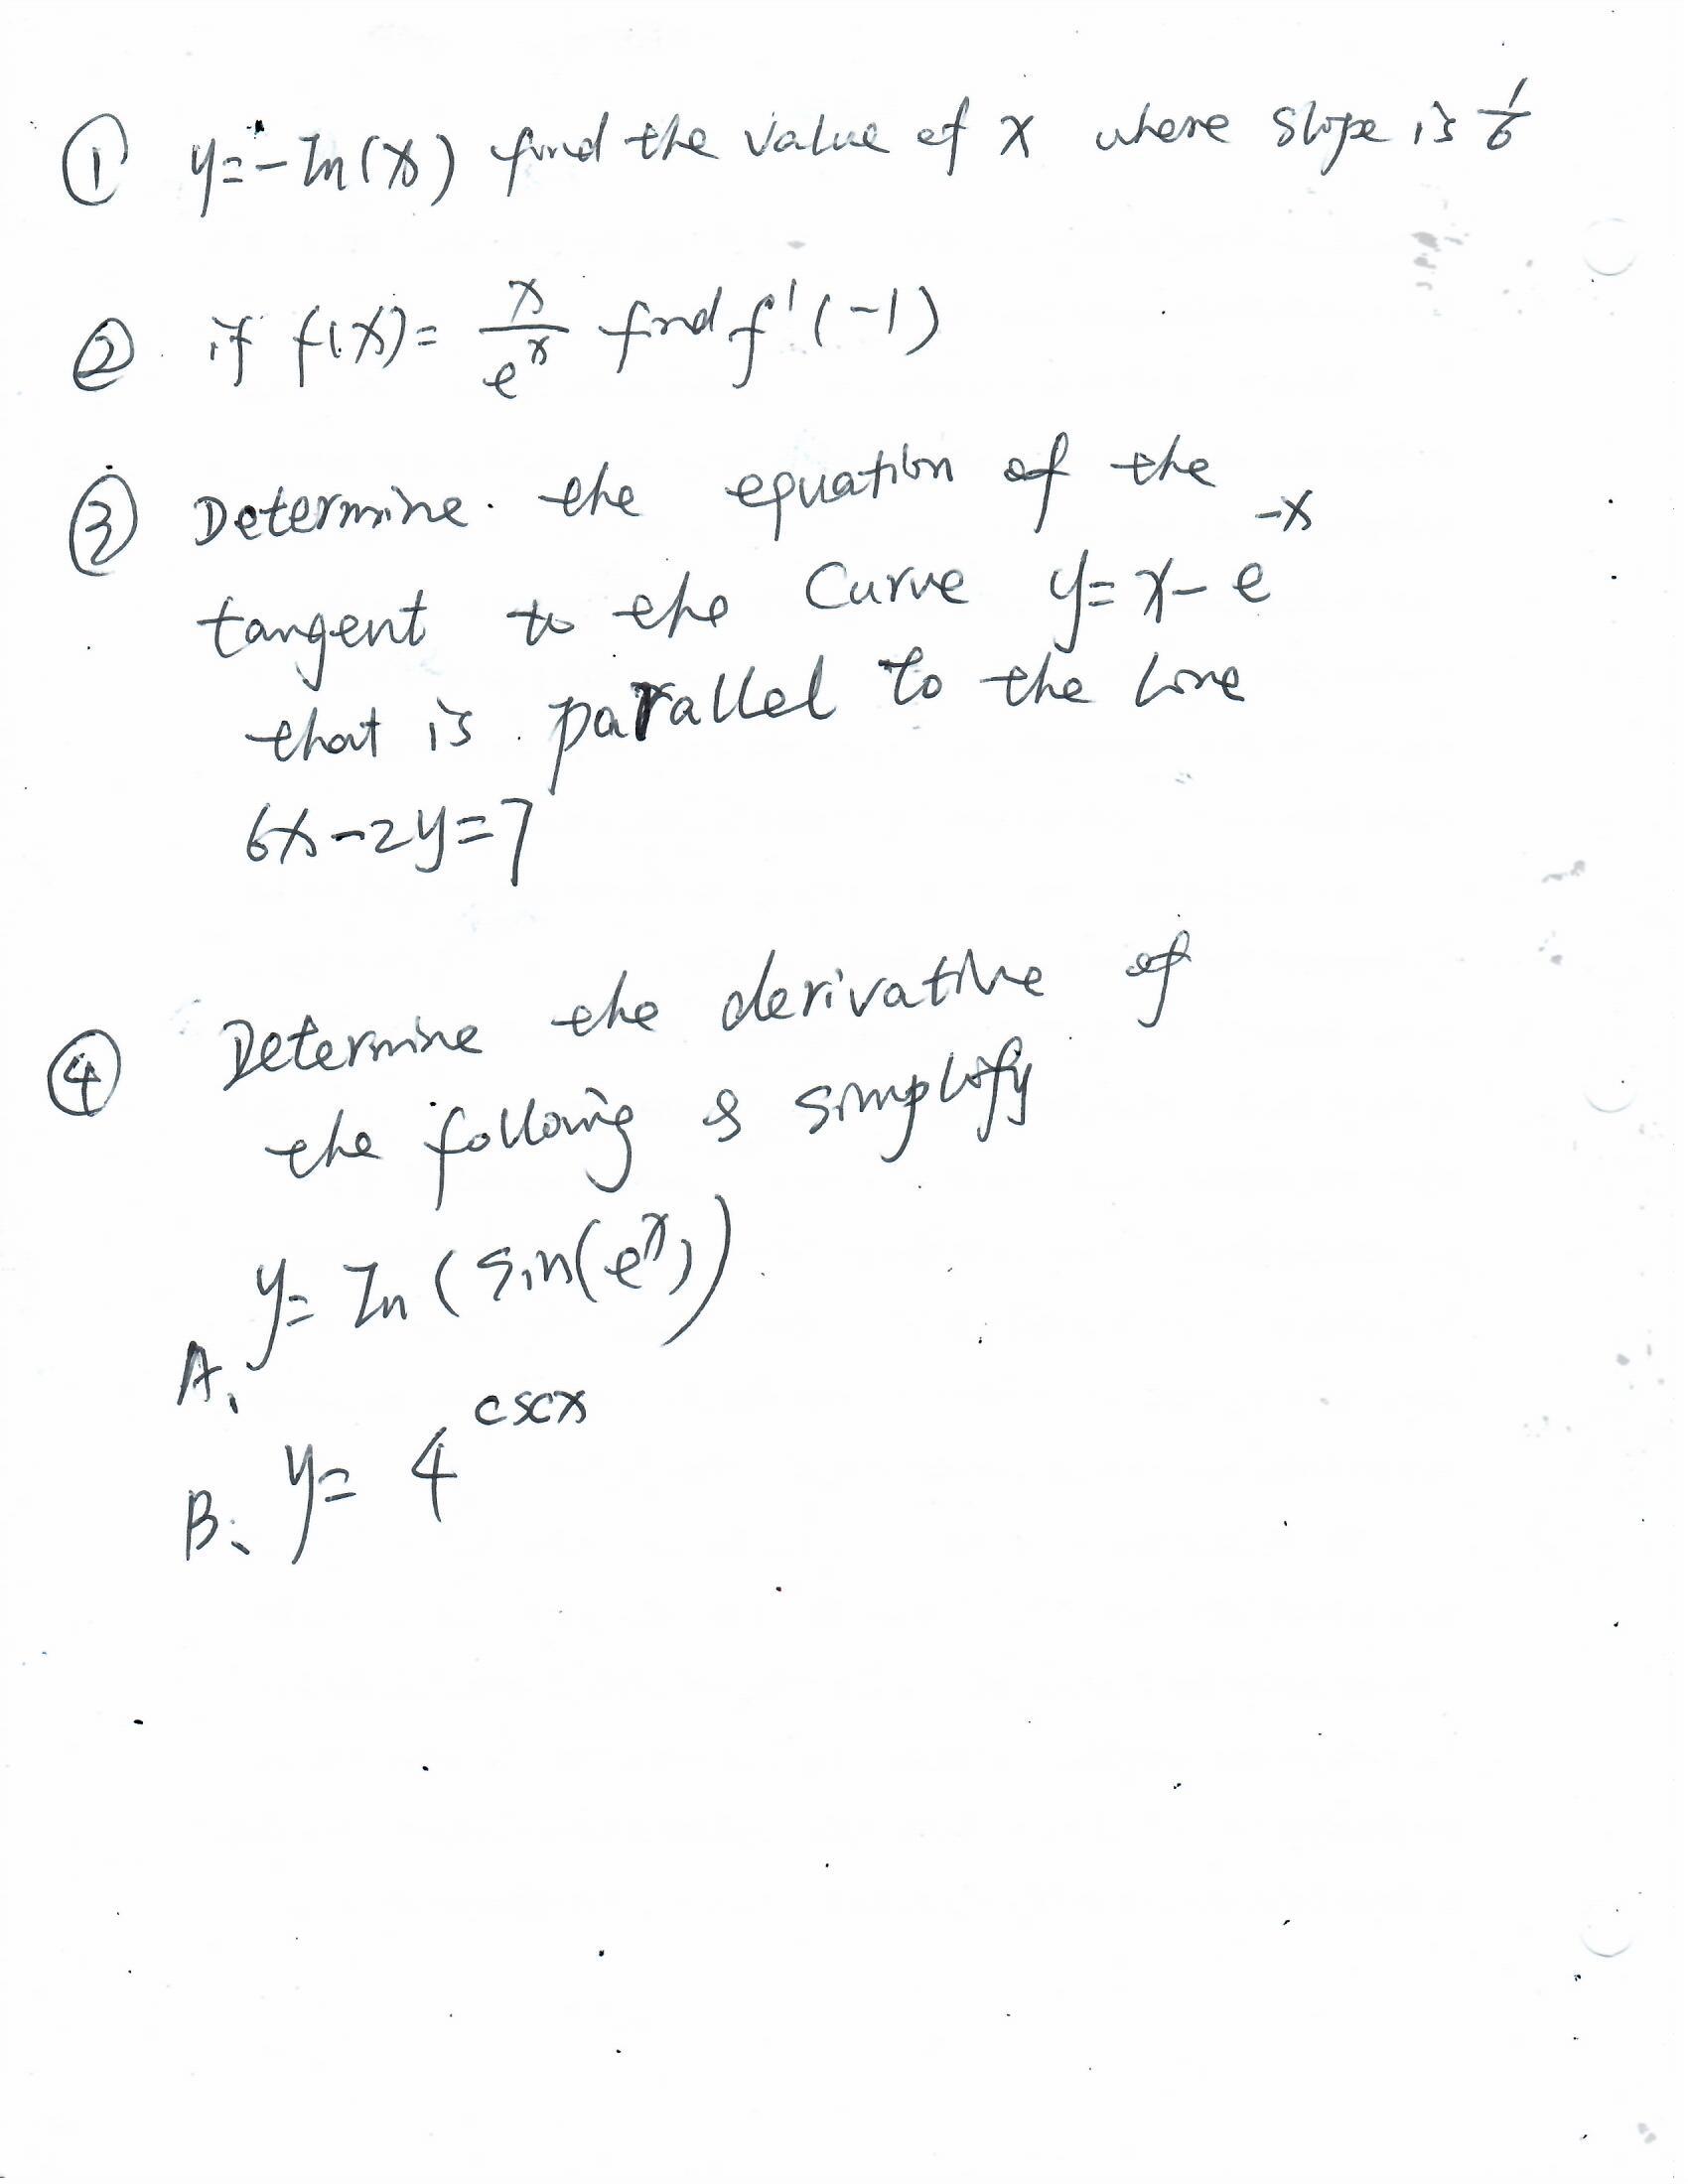 ① y=-ln(x) find the value of x where slope is 1/6
② if f(x)= x/e^x find f'(-1)
③ Determine the equation of the
tangent to the curve y=x-e^-x
that is parallel to the line
6x-2y=7
④ Determine the derivative of
the following & simplify
A. y= ln(sin(e^x))
B. y= 4^cscx